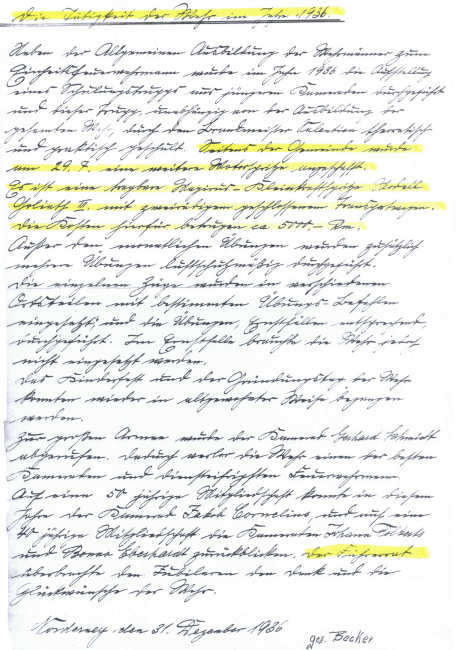 Die Tätigkeit der Wehr im Jahre 1936.
Neben der Allgemeinen Ausbildung der Wehrmänner zum
Einheitsfeuerwehrmann wurde im Jahre 1936 die Aufstellung
eines Schulungstrupps aus jüngeren Kameraden durchgeführt
und dieser Trupp, unabhängig von der Ausbildung der
gesamten Wehr, durch den Brandmeister theoretisch
und praktisch geschult. Seitens der Gemeinde wurde
am 29.7. eine weitere Motorspritze angeschafft.
Es ist eine tragbare Magirus-Kleinkraftspritze Modell
Goliath II. mit zweirädrigem geschlossenem
Die Kosten hierfür betrugen ca 5000.- Rm.
Außer den monatlichen Übungen wurden zusätzlich
mehrere Übungen luftschutzmäßig durchgeführt.
Die einzelnen Züge wurden in verschiedenen
Ortsteilen mit bestimmten Übungs-Befehlen
eingesetzt, und die Übungen, Ernstfällen entsprechend,
durchgeführt. Im Ernstfalle brauchte die Wehr
nicht eingesetzt werden.
Das Kinderfest und der Gründungstag der Wehr
konnten wieder in altgewohnter Weise begangen
werden.
Zur großen Armee wurde der Kamerad Gerhard Schmidt
abgerufen. Dadurch verlor die Wehr einen der besten
Kameraden und diensteifrigsten Feuerwehrmann.
Auf eine 50 jährige Mitgliedschaft konnte in diesem
Jahre der Kamerad Jakob Cornelius, und auf eine
40 jährige Mitgliedschaft die Kameraden Johann
und Bonno Eberhardt zurückblicken. Der Führerrat
überbrachte den Jubilaren den Dank und die
Glückwünsche der Wehr.
Norderney den 31. Dezember 1936
gez. Becker